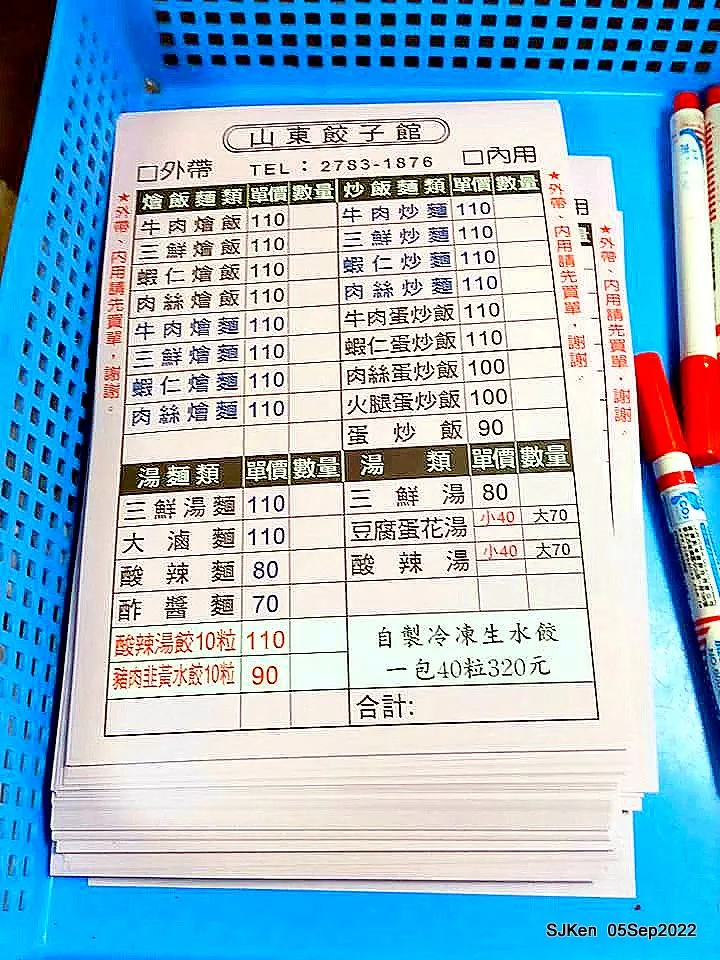 山東餃子館
□外帶 TEL：2783-1876 □內用
燴飯麵類 單價 數量 炒飯麵類 單價 數量
牛肉燴飯 110 牛肉炒麵 110
三鮮燴飯 110 三鮮炒麵 110
蝦仁燴飯 110 蝦仁炒麵 110
肉絲燴飯 110 肉絲炒麵 110
牛肉燴麵 110 牛肉蛋炒飯 110
三鮮燴麵 110 蝦仁蛋炒飯 110
蝦仁燴麵 110 肉絲蛋炒飯 100
肉絲燴麵 110 火腿蛋炒飯 100
蛋炒飯 90
湯麵類 單價 數量 湯類 單價 數量
三鮮湯麵 110 三鮮湯 80
大滷麵 110 豆腐蛋花湯 小40 大70
酸辣麵 80 酸辣湯 小40 大70
酢醬麵 70
酸辣湯餃10粒 110 自製冷凍生水餃
豬肉韭黃水餃10粒 90 一包40粒320元
合計:
★外帶、內用請先買單，謝謝。
★外帶、內用請先買單，謝謝。
用
★外帶、內用請先買單，謝謝。
SJKen 05Sep2022